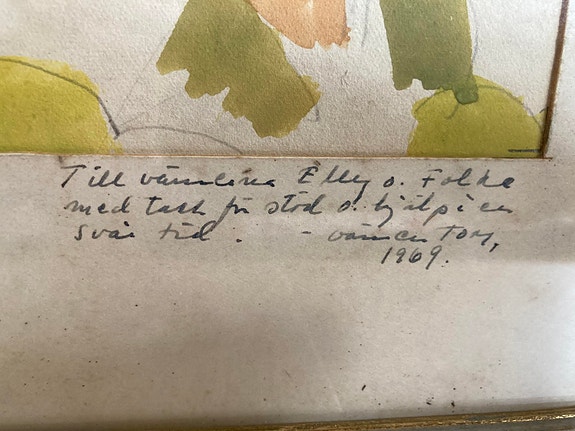 Till vännerna Elly o. Folke
med tack för stöd o. hjälp i en
svår tid. - vännen Tom,
1969.